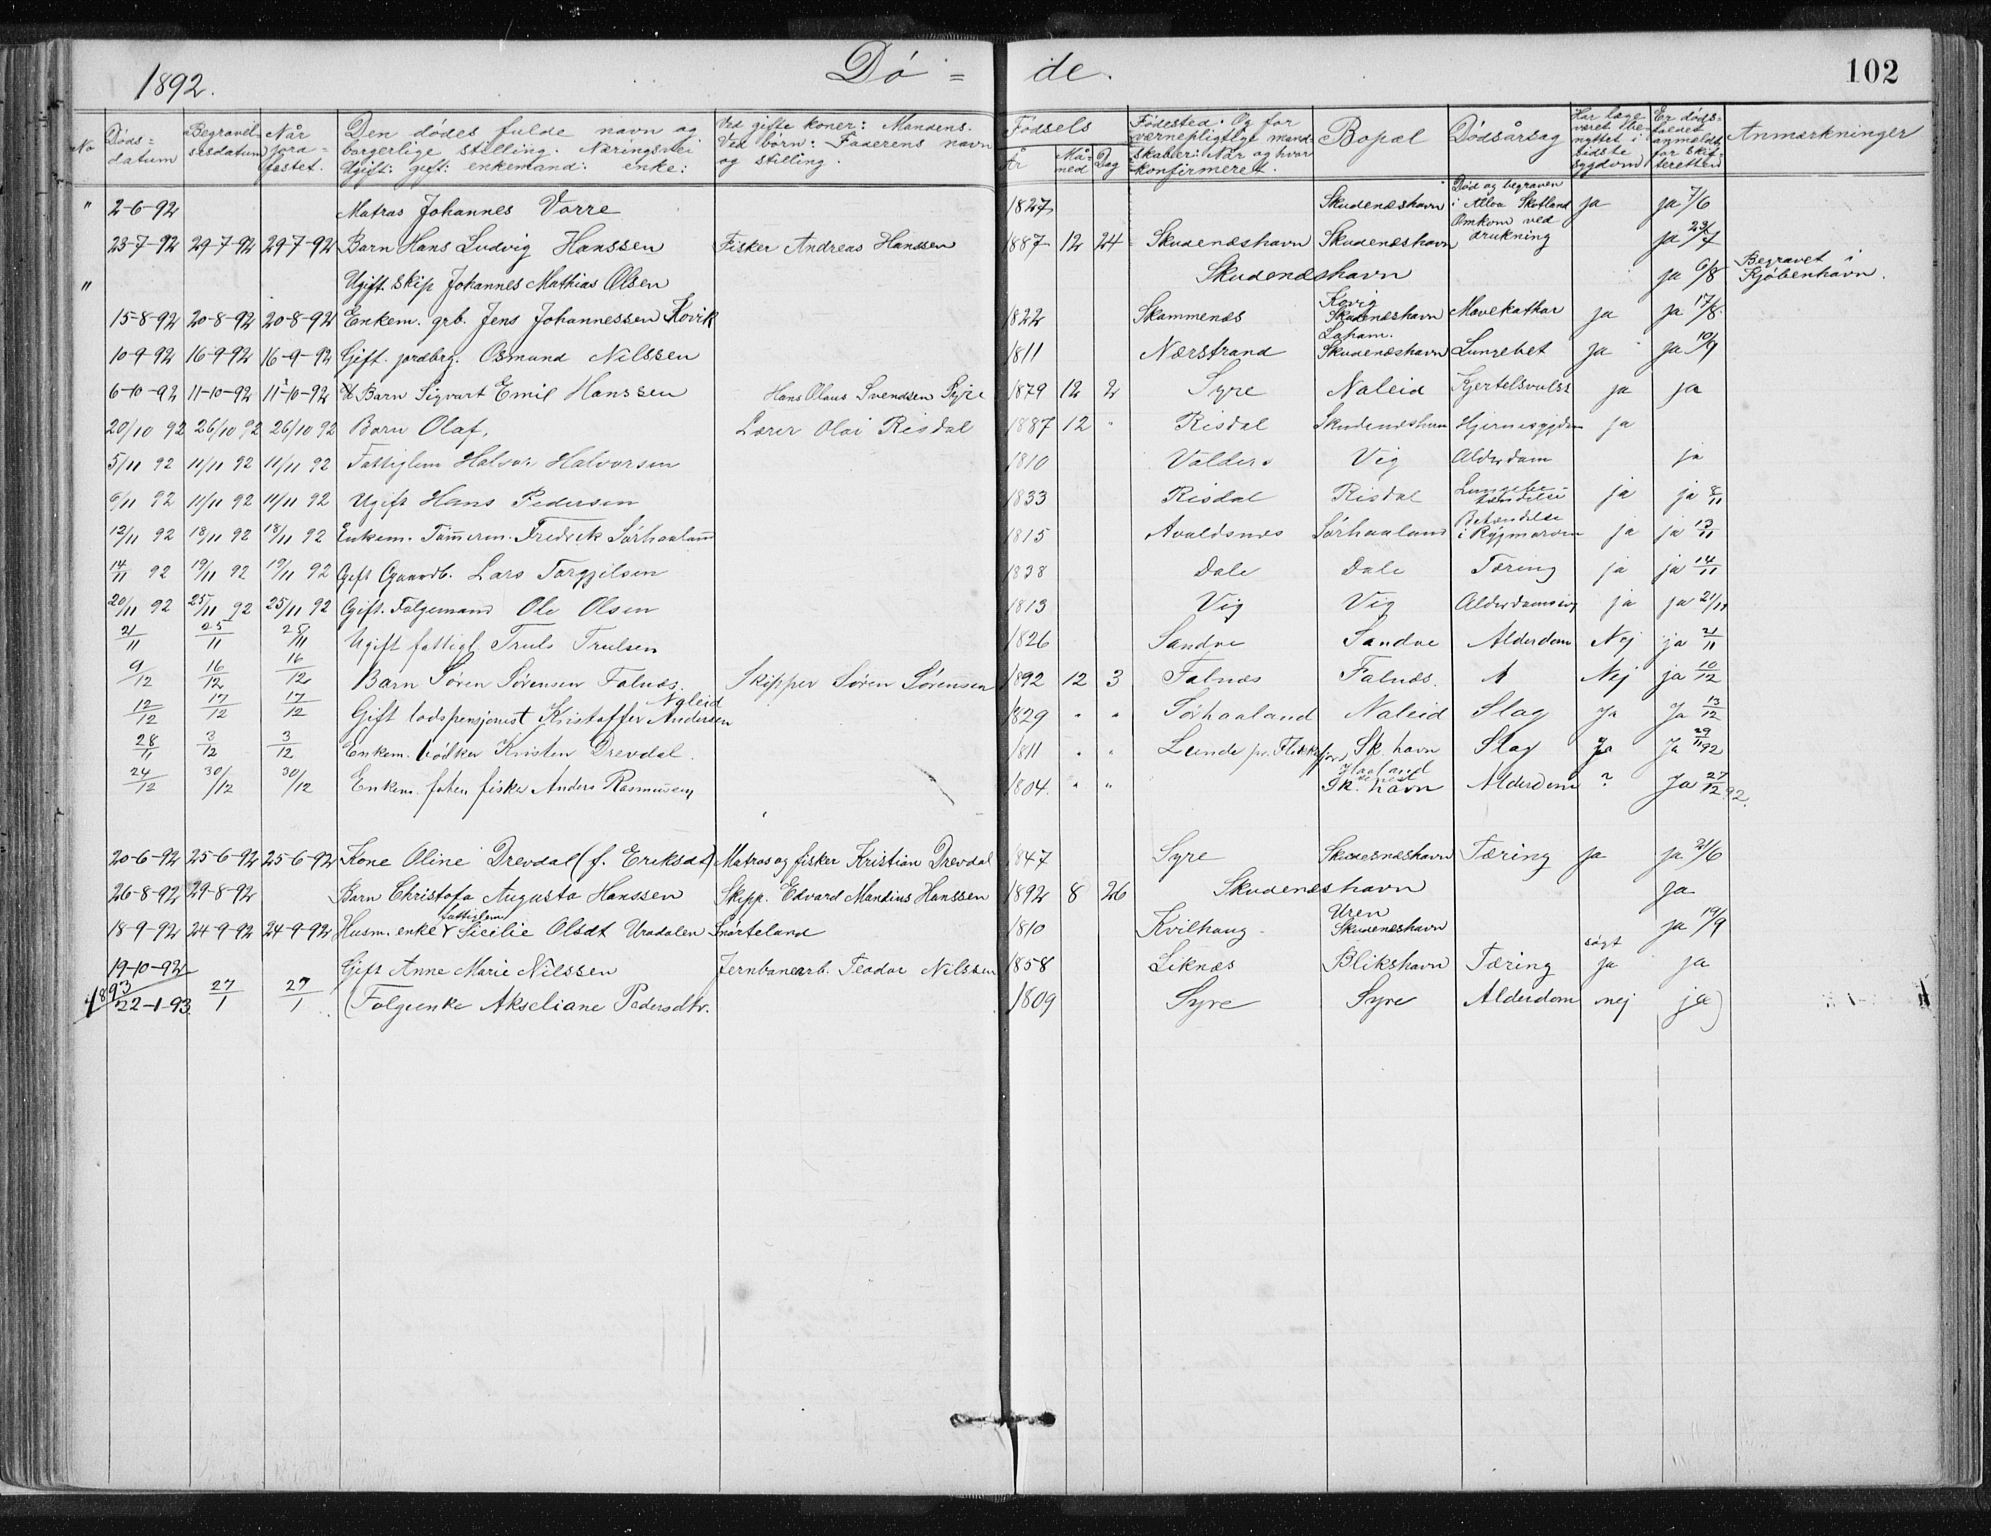 1892. Dö = de. 102
No Döds-datum Begravel-sesdatum Når jord-fæstet. Den dödes fulde navn og borgerlige stilling. Næringsvei Ugift: gift: enkemand: enke: Ved gifte koner: Mandens. Ved börn: Faderens navn og stilling. Födsels År Må-ned Dag Födested. Og for værnepligtige mand-skaber: Når og hvor konfirmeret. Bopæl Dödsårsag Har læge været be-nyttet i sidste sygdom Er döds-faldet anmeldt for skif-teretten Anmærkninger
" 2-6-92 Matros Johannes Vorre 1827 Skudenæshavn Död og begraven i Alloa Skotland ja ja 7/6
23-7-92 29-7-92 29-7-92 Barn Hans Ludvig Hanssen Fisker Andreas Hanssen 1887 12 24 Skudenæshavn Skudenæshavn Omkom ved drukning ja 23/7
" Ugift skip Johannes Mathias Olsen Skudenæshavn ja 6/8 Begravet i Kjöbenhavn.
15-8-92 20-8-92 20-8-92 Enkem. grb. Jens Johannessen Kovik 1822 Skammenæs Kovig Skudenæshavn Mavekathar ja ja 17/8.
10-9-92 16-9-92 16-9-92 Gift. jordbrg. Osmund Nilssen 1811 Nærstrand Laham. Skudenæshavn Lungebet ja ja 10/9
6-10-92 11-10-92 11-10-92 Barn Sigvart Emil Hanssen Hans Olaus Svendsen Syre 1879 12 2 Syre Naleid Kjertelsvulst ja ja
20/10 92 26/10 92 26/10 92 Barn Olaf. Lærer Olai Risdal 1887 12 " Risdal Skudeneshavn Hjernesygdom ja
5/11 92 11/11 92 11/11 92 Fattiglem Halvor Halvorsen 1810 Valders Vig Alderdom ja
6/11 92 11/11 92 11/11 92 Ugift Hans Pedersen 1833 Risdal Risdal Lungebe-tændelse ja ja 8/11
12/11 92 18/11 92 18/11 92 Enkem. Tömmerm. Fredrik Sörhaaland 1815 Avaldsnes Sörhaaland Betændelse i Rygmarven ja ja 13/11
14/11 92 19/11 92 19/11 92 Gift Gaardb. Lars Torgjilsen 1838 Dale Dale Tæring ja ja 14/11
20/11 92 25/11 92 25/11 92 Gift. Folgemand Ole Olsen 1813 Vig Vig ja ja 21/11
21/11 25/11 25/11 Ugift fattigl. Truls Trulsen 1826 Sandve Sandve Alderdom Nej ja 21/11
9/12 16/12 16/12 Barn Sören Sörensen Falnæs. Skipper Sören Sörensen 1892 12 3 Falnæs Falnæs. Nej ja 10/12
12/12 17/12 17/12 Gift lodspensjonist Kristoffer Andersen Naleid 1829 " " Sörhaaland Naleid Slag Ja Ja 13/12
28/11 3/12 3/12 Enkem. bödker Kristen Drevdal. 1811 " " Lunde pr. Flekkefjord Sk. havn Slag Ja Ja 29/11 92
24/12 30/12 30/12 Enkem. foren fisker Anders Rasmussen 1804. " " Sk. havn Alderdom ? Ja 27/12 92.
20-6-92 25-6-92 25-6-92 Kone Oline Drevdal (f. Eriksdt) Matros og fisker Kristian Drevdal 1847 Syre Skudesnæshavn Tæring ja ja 21/6
26-8-92 29-8-92 Barn Christofa Augusta Hanssen Skipp. Edvard Mandius Hanssen 1892 8 26 Skudenæshavn ja
18-9-92 24-9-92 24-9-92 Husm. enke fattiglem Sicilie Olsdt Uradalen Snörteland 1810 Kvilhaug Uren Skudenæshavn ja 19/9
19-10-92 Gift Anne Marie Nilssen Jernbanearb. Teodor Nilssen 1858 Liknæs Blikshavn Tæring sögt ja ja
1893 22-1-93 27/1 27/1 (Folgeenke Akseliane Pedersdtr. 1809 Syre Syre Alderdom nej ja)